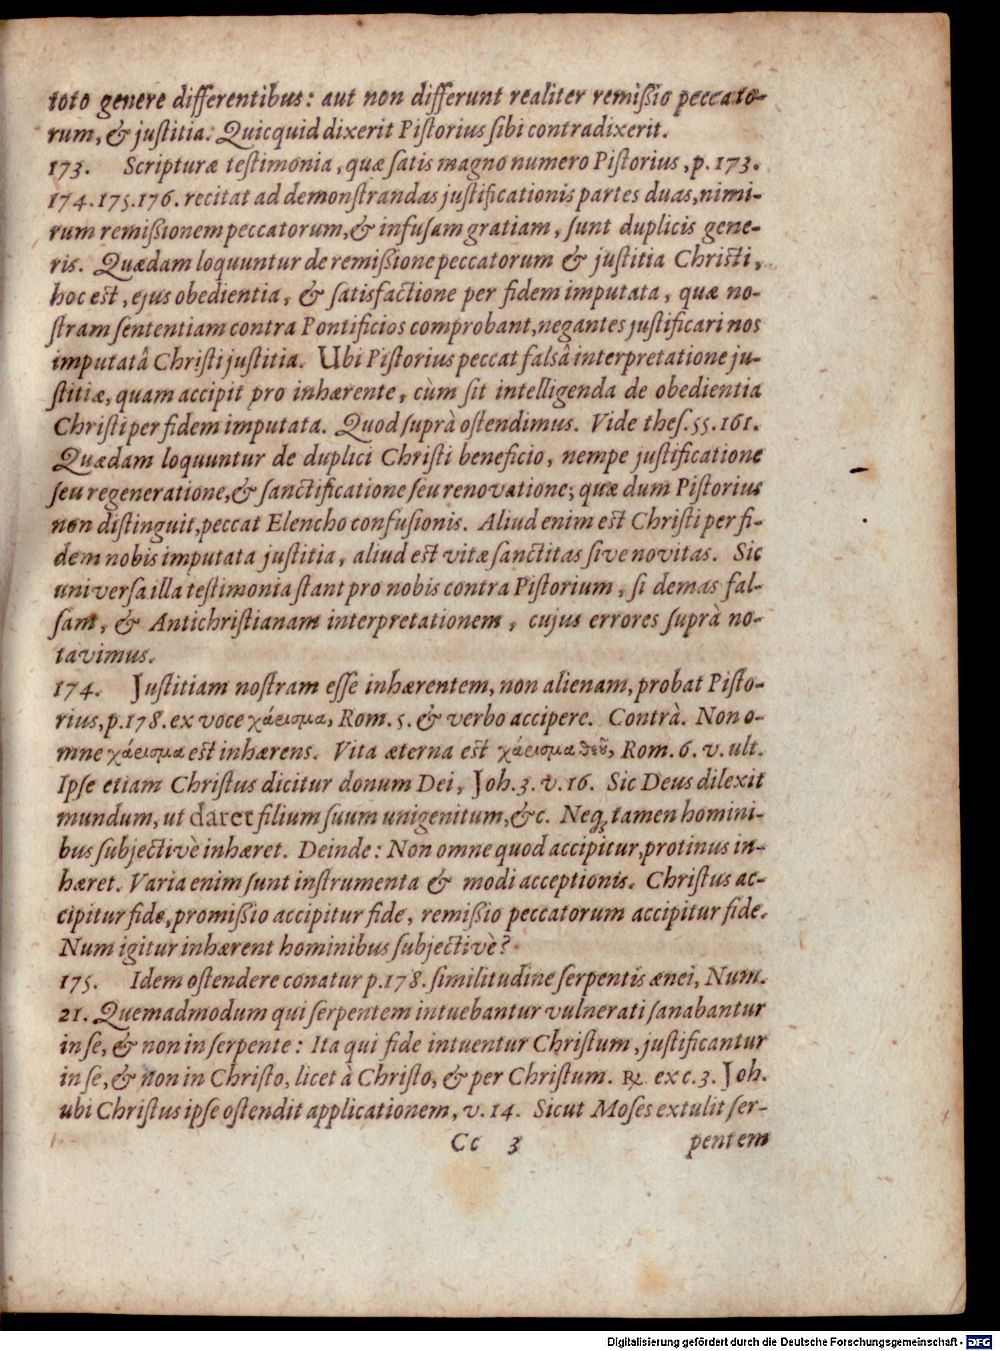 toto genere differentibus: aut non differunt realiter remißio peccato-
rum, & justitia. Quicquid dixerit Pistorius sibi contradixerit.
173. Scripturæ testimonia, quæ satis magno numero Pistorius, p. 173.
174. 175. 176. recitat ad demonstrandas justificationis partes duas, nimi-
rum remißionem peccatorum, & infusam gratiam, sunt duplicis gene-
ris. Quædam loquuntur de remißione peccatorum & justitia Christi,
hoc est, ejus obedientia, & satisfactione per fidem imputata, quæ no-
stram sententiam contra Pontificios comprobant, negantes justificari nos
imputatâ Christi justitia. Ubi Pistorius peccat falsâ interpretatione ju-
stitiæ, quam accipit pro inhærente, cùm sit intelligenda de obedientia
Christi per fidem imputata. Quod suprà ostendimus. Vide thes. 55. 161.
Quædam loquuntur de duplici Christi beneficio, nempe justificatione
seu regeneratione, & sanctificatione seu renovatione; quæ dum Pistorius
non distinguit, peccat Elencho confusionis. Aliud enim est Christi per fi-
dem nobis imputata justitia, aliud est vitæ sanctitas sive novitas. Sic
universa illa testimonia stant pro nobis contra Pistorium, si demas fal-
sam, & Antichristianam interpretationem, cujus errores suprà no-
tavimus.
174. Justitiam nostram esse inhærentem, non alienam, probat Pisto-
rius, p. 178. ex voce χάρισμα, Rom. 5. & verbo accipere. Contrà. Non o-
mne χάρισμα est inhærens. Vita æterna est χάρισμα θεοῦ, Rom. 6. v. ult.
Ipse etiam Christus dicitur donum Dei, Joh. 3. v. 16. Sic Deus dilexit
mundum, ut daret filium suum unigenitum, &c. Neq; tamen homini-
bus subjectivè inhæret. Deinde: Non omne quod accipitur, protinus in-
hæret. Varia enim sunt instrumenta & modi acceptionis. Christus ac-
cipitur fide, promißio accipitur fide, remißio peccatorum accipitur fide.
Num igitur inhærent hominibus subjectivè?
175. Idem ostendere conatur p. 178. similitudine serpentis ænei, Num.
21. Quemadmodum qui serpentem intuebantur vulnerati sanabantur
in se, & non in serpente: Ita qui fide intuentur Christum, justificantur
in se, & non in Christo, licet à Christo, & per Christum. ℞. ex c. 3. Joh.
ubi Christus ipse ostendit applicationem, v. 14. Sicut Moses extulit ser-
Cc 3 pentem
Digitalisierung gefördert durch die Deutsche Forschungsgemeinschaft - DFG